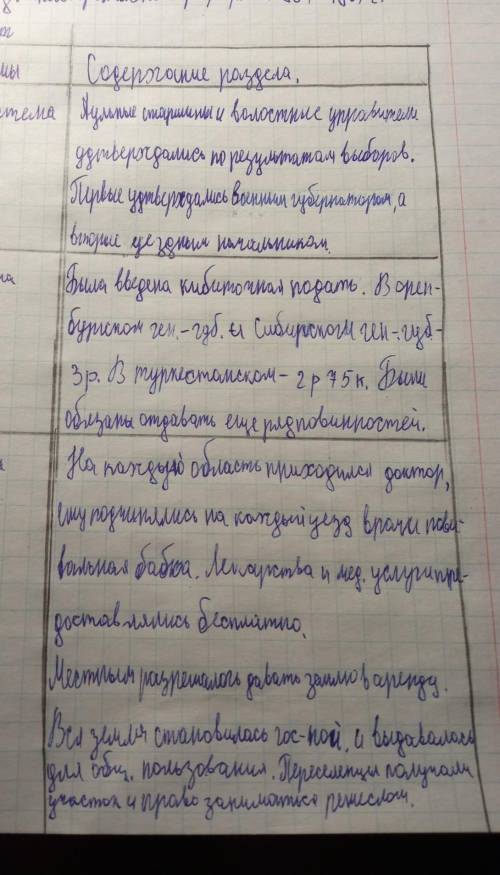 мы
Содержание раздела.
стема
Аульные старшины и волостные управители
удтверждались по результатам выборов.
Первые удтверждались военным губернатором, а
вторые уездным начальником.
Была введена кибиточная подать. В орен-
буржском ген.-губ. и Сибирском ген-губ-
3р. В туркестанском - 2р 75к. Были
обязаны отдавать еще ряд повинностей.
На каждую область приходился доктор,
ему подчинялись на каждый уезд врачи пови-
вальная бабка. Лекарства и мед. услуги пре-
доставлялись бесплатно.
Местным разрешалось давать землю в аренду.
Вся земля становилась гос-ной, и выдавалось
для общ. пользования. Переселенцы получали
участок и право заниматься ремеслом.